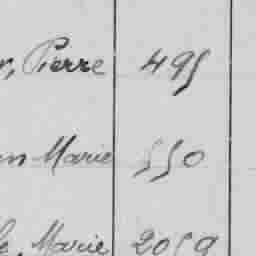 r, Pierre 495
n Marie 550
e, Marie 2059